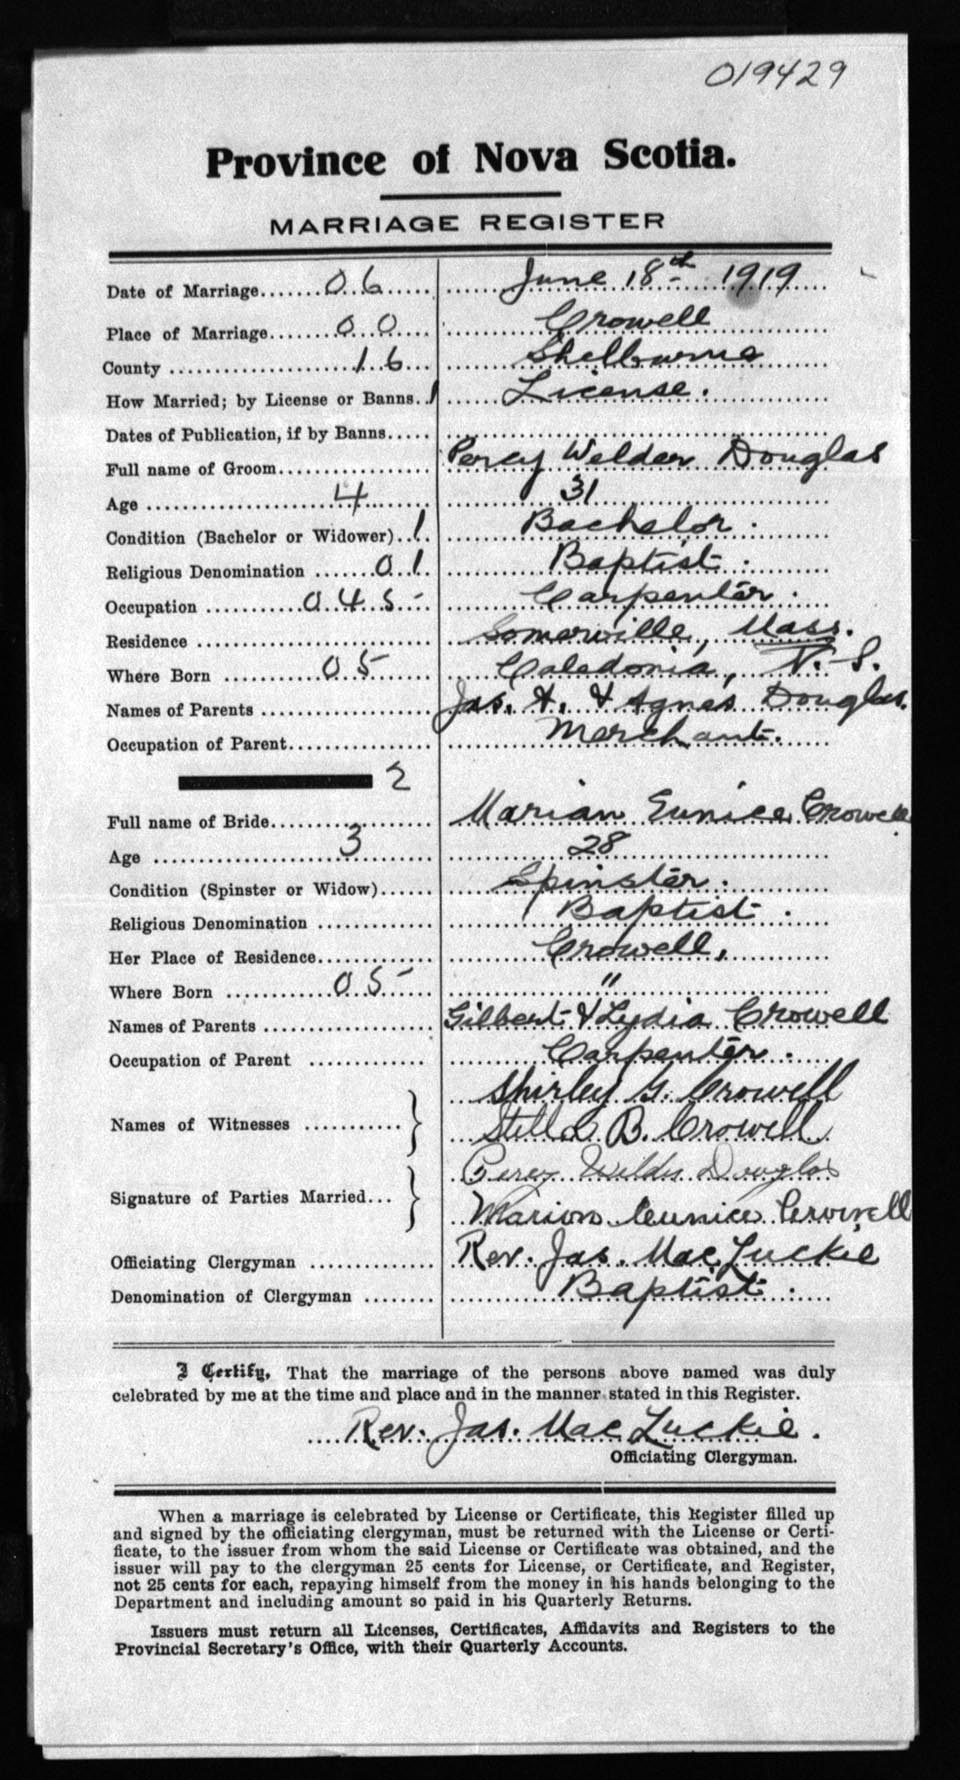 019429
Province of Nova Scotia.
MARRIAGE REGISTER
Date of Marriage....... 06 ..... June 18th 1919
Place of Marriage....... 00 ..... Crowell
County ....... 16 ..... Shelburne
How Married; by License or Banns.. 1 License.
Dates of Publication, if by Banns.....
Full name of Groom................ Percy Welder Douglas
Age ....... 4 ....... 31
Condition (Bachelor or Widower).. 1. Bachelor.
Religious Denomination ....... 01. Baptist.
Occupation ....... 045- Carpenter.
Residence ....... Somerville, Mass.
Where Born ....... 05 ..... Caledonia, N.S.
Names of Parents ....... Jas. A. & Agnes Douglas.
Occupation of Parent....... Merchant.
2
Full name of Bride....... Marian Eunice Crowell
Age ....... 3 ....... 28
Condition (Spinster or Widow)...... Spinster.
Religious Denomination ....... Baptist.
Her Place of Residence....... Crowell,
Where Born ....... 05- "
Names of Parents ....... Gilbert & Lydia Crowell
Occupation of Parent ....... Carpenter.
Shirley G. Crowell
Names of Witnesses ....... } Stella B. Crowell
Percy Wilder Douglas
Signature of Parties Married... } Marion Eunice Crowell
Officiating Clergyman ....... Rev. Jas. MacLuckie
Denomination of Clergyman ....... Baptist.
I Certify, That the marriage of the persons above named was duly
celebrated by me at the time and place and in the manner stated in this Register.
Rev. Jas. MacLuckie.
Officiating Clergyman.
When a marriage is celebrated by License or Certificate, this Register filled up
and signed by the officiating clergyman, must be returned with the License or Certi-
ficate, to the issuer from whom the said License or Certificate was obtained, and the
issuer will pay to the clergyman 25 cents for License, or Certificate, and Register,
not 25 cents for each, repaying himself from the money in his hands belonging to the
Department and including amount so paid in his Quarterly Returns.
Issuers must return all Licenses, Certificates, Affidavits and Registers to the
Provincial Secretary's Office, with their Quarterly Accounts.